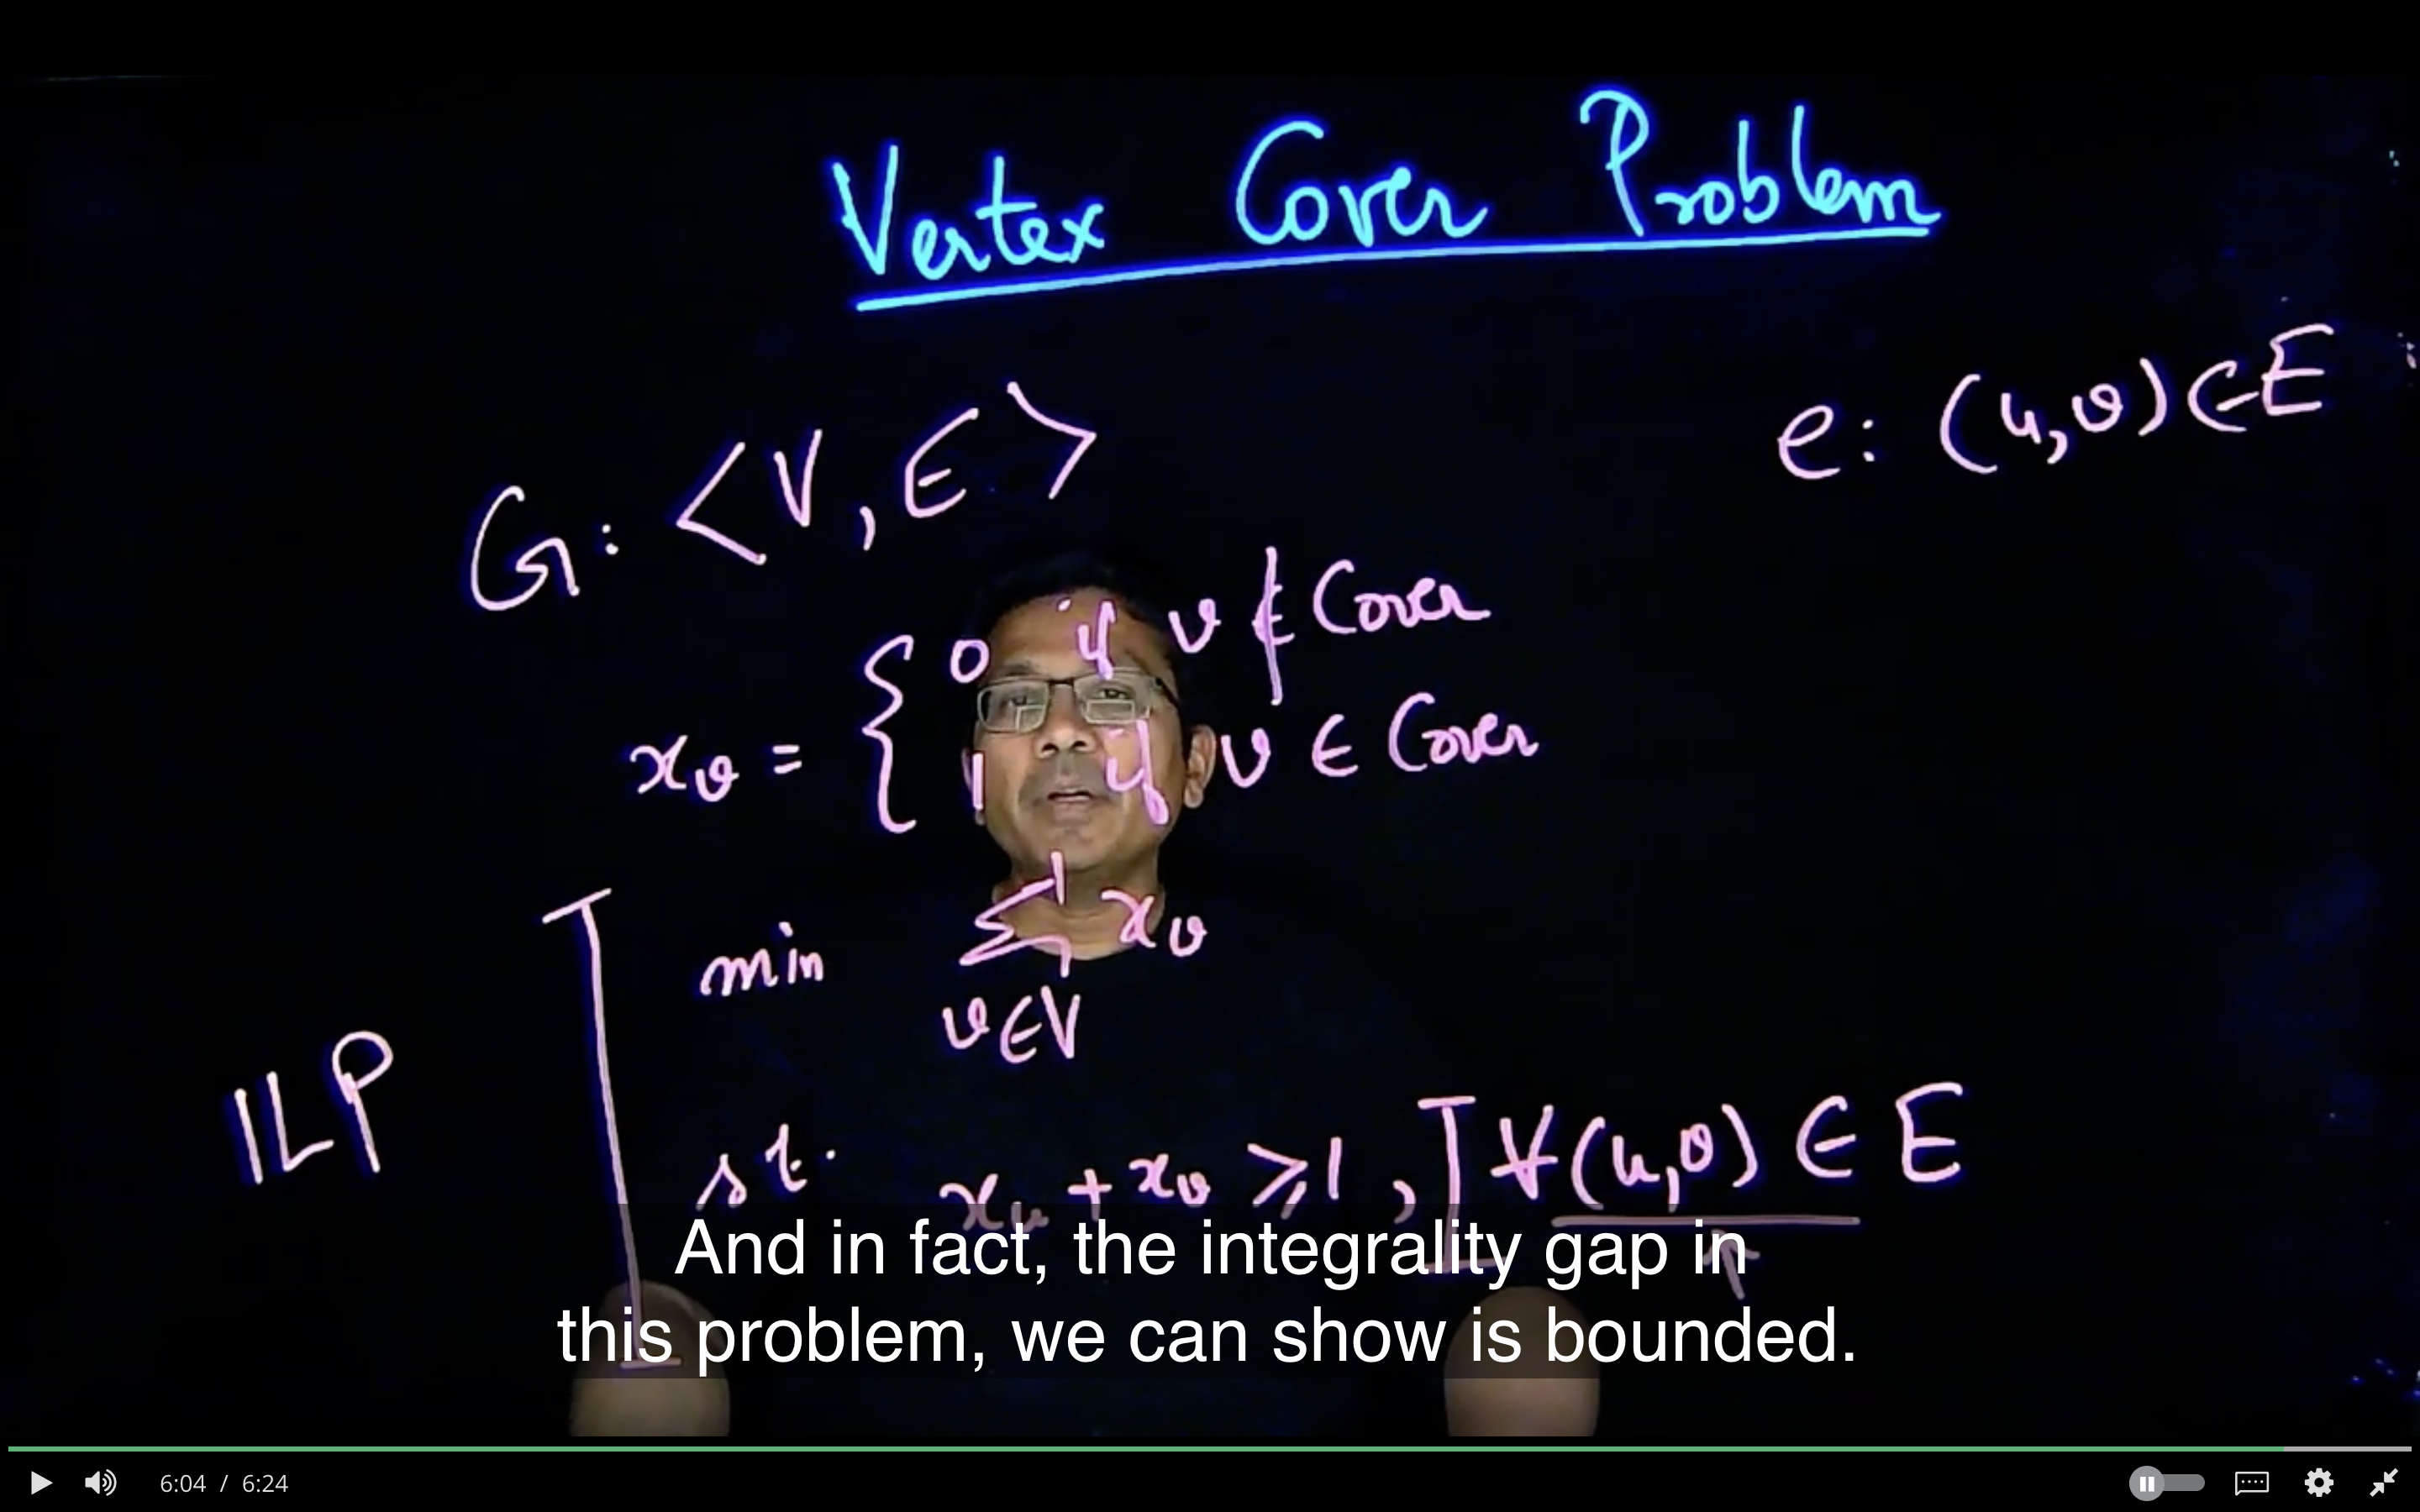 Vertex Cover Problem
e: (u,v) ∈ E
G: <V, E>
0 if v ∉ Cover
x_v = {
1 if v ∈ Cover
min Σ x_v
v∈V
ILP
st. x_u + x_v ≥ 1, ] ∀ (u,v) ∈ E
And in fact, the integrality gap in
this problem, we can show is bounded.
6:04 / 6:24